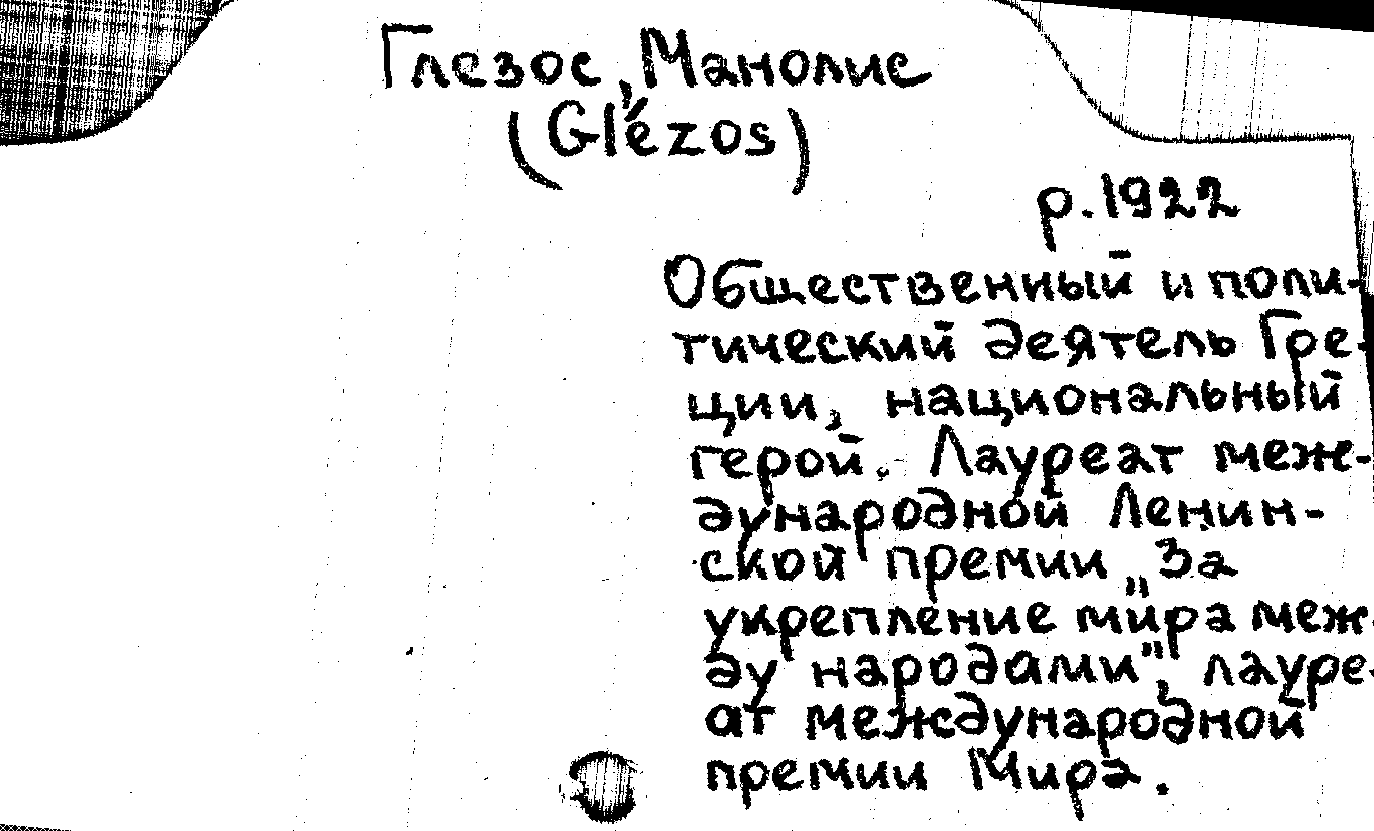 Глезос, Манолис
(Glézos)
р. 1922
Общественный и поли-
тический деятель Гре-
ции, национальный
герой. Лауреат меж-
дународной Ленин-
ской премии „За
укрепление мира меж-
ду народами", лауре-
ат международной
премии Мира.